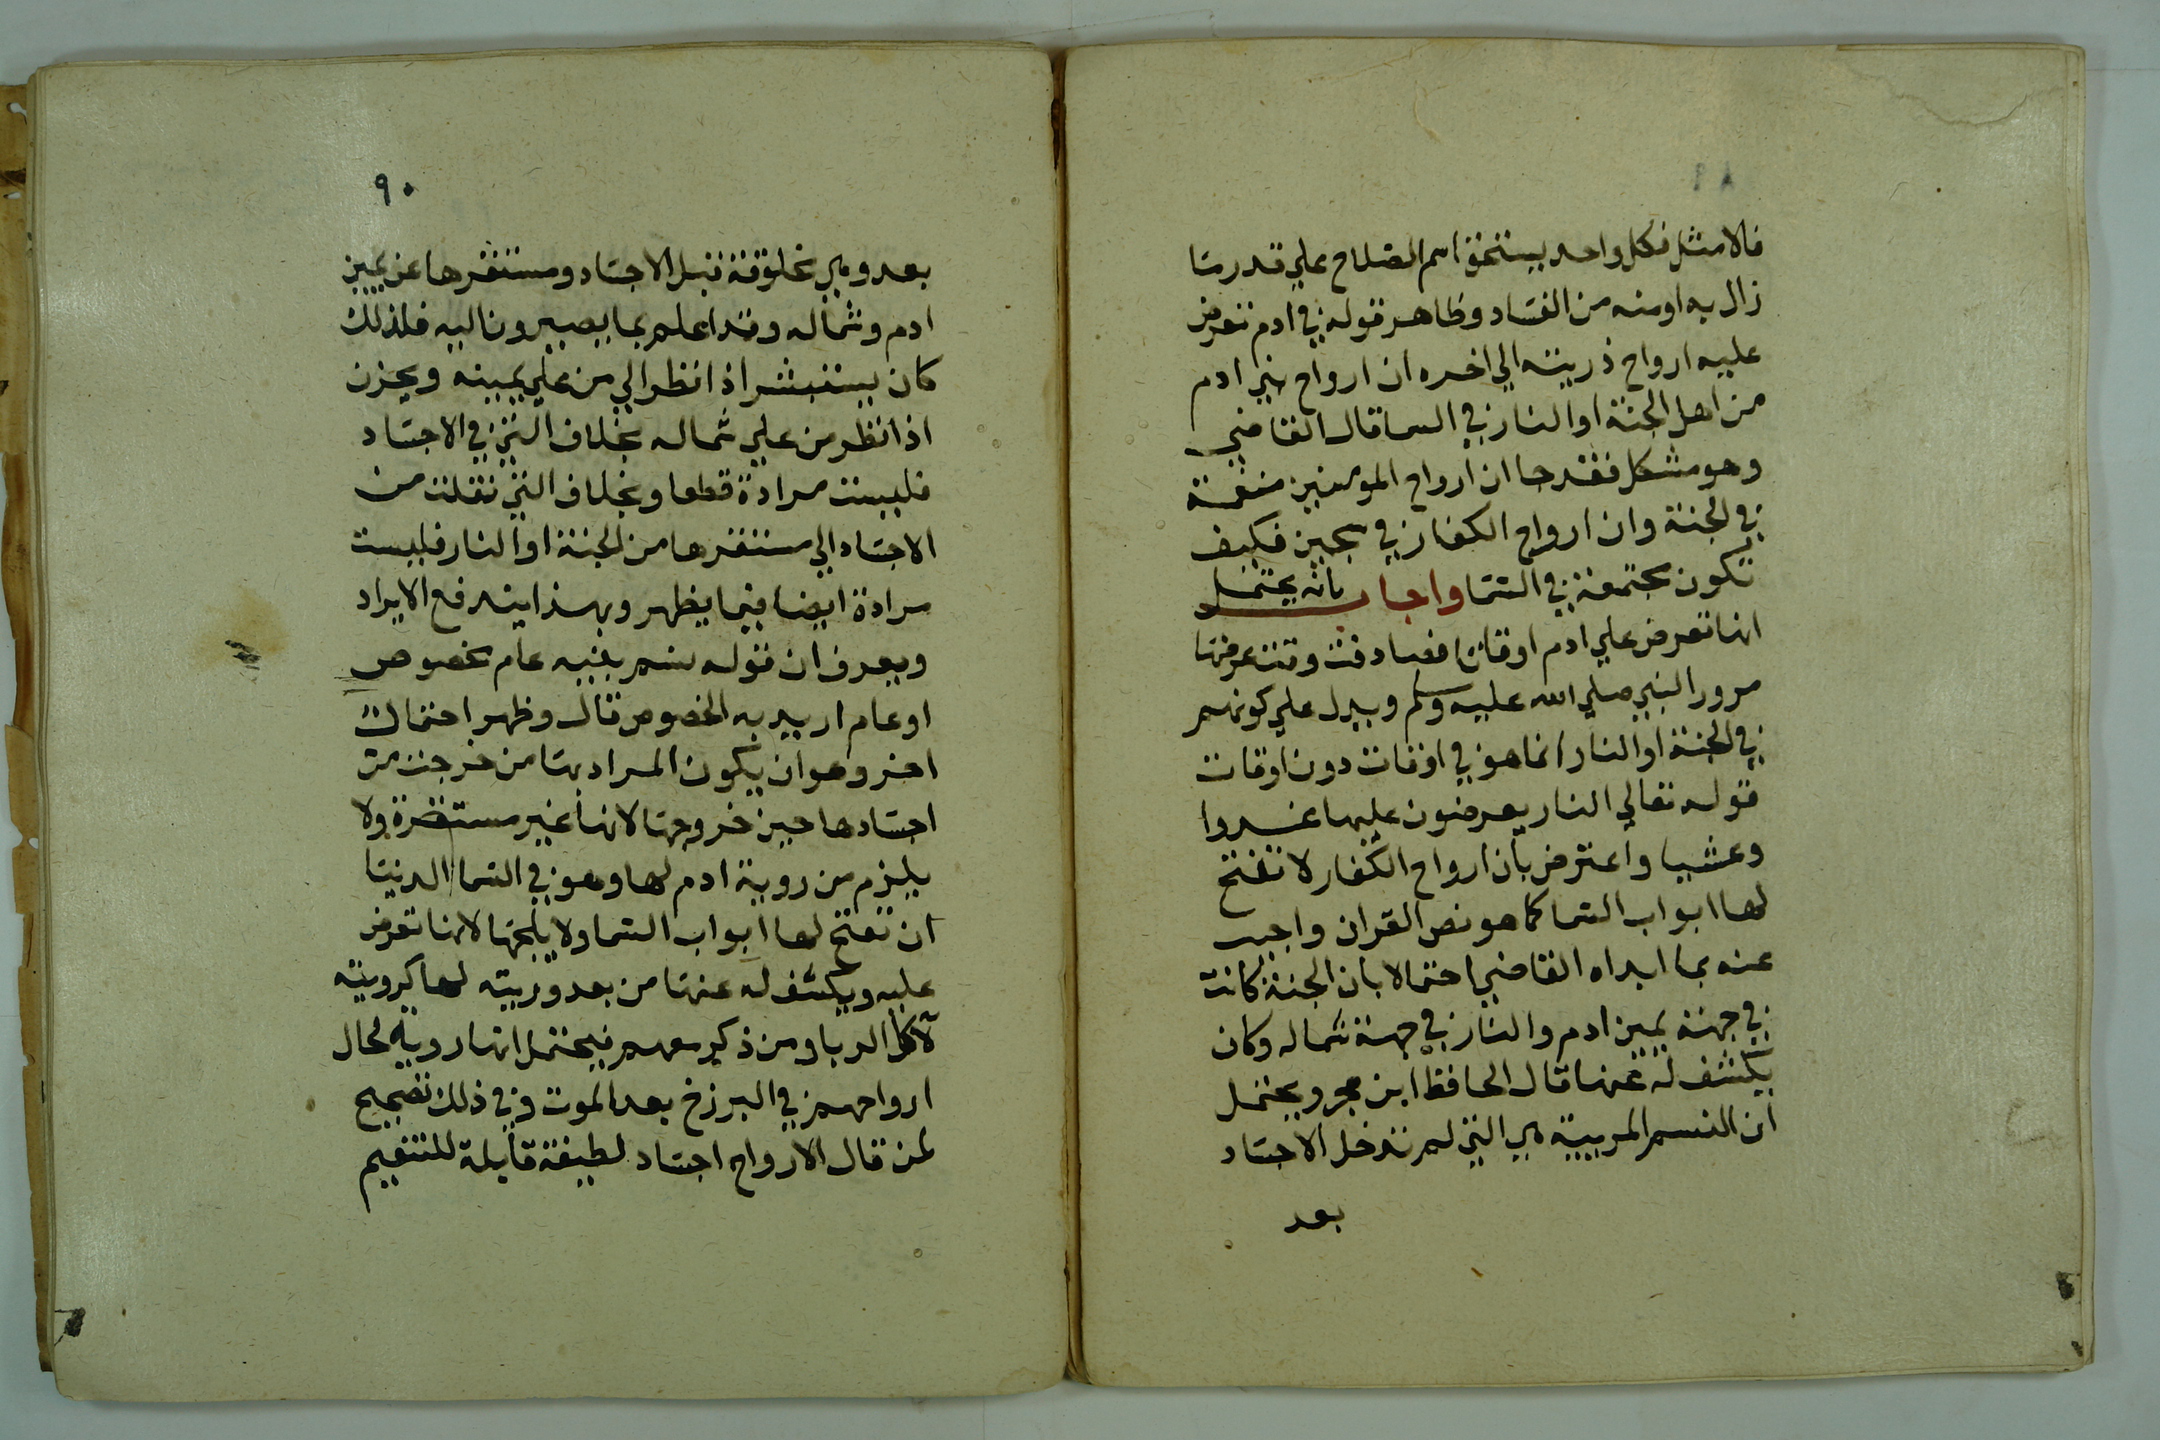 ٨٩
فالامثل فكل واحد يستحق اسم الصلاح علي قدر ما
زال به او منه من الفساد وظاهر قوله في ادم تعرض
عليه ارواح ذريته الي اخره ان ارواح بني ادم
من اهل الجنة او النار في السما قال القاضي
وهو مشكل فقد جا ان ارواح المومنين منعمة
في الجنة وان ارواح الكفار في سجين فكيف
تكون مجتمعة في السما واجاب بانه يحتمل
انها تعرض علي ادم اوقاتا فصادفت وقت عرضها
مرور النبي صلي الله عليه وسلم ويدل علي كونهم
في الجنة او النار انما هو في اوقات دون اوقات
قوله تعالي النار يعرضون عليها غدوا
وعشيا واعترض بان ارواح الكفار لا تفتح
لها ابواب السما كما هو نص القران واجيب
عنه بما ابداه القاضي احتمالا بان الجنة كانت
في جهة يمين ادم والنار في جهة شماله وكان
يكشف له عنها قال الحافظ ابن حجر ويحتمل
ان النسم المربية هي التي لم تدخل الاجساد
بعد
٩٠
بعد وهي مخلوقة قبل الاجساد ومستقرها عن يمين
ادم وشماله وقد اعلم بما يصيرون اليه فلذلك
كان يستبشر اذا نظر الي من علي يمينه ويحزن
اذا نظر من علي شماله بخلاف التي في الاجساد
فليست مرادة قطعا وبخلاف التي نقلت من
الاجساد الي مستقرها من الجنة او النار فليست
مرادة ايضا فيما يظهر وبهذا يندفع الايراد
ويعرف ان قوله نسم بنيه عام مخصوص
او عام اريد به الخصوص قال وظهر احتمال
اخر وهو ان يكون المراد بها من خرجت من
اجسادها حين خروجها لانها غير مستقرة ولا
يلزم من روية ادم لها وهو في السما الدنيا
ان تفتح لها ابواب السما ولا يلجها لانها تعرض
عليه ويكشف له عنها من بعد وريته لها كرويته
لآكل الربا ومن ذكر معهم فيحتمل انها روية لحال
ارواحهم في البرزخ بعد الموت وفي ذلك تصحيح
لمن قال الارواح اجساد لطيفة قابلة للتنعيم